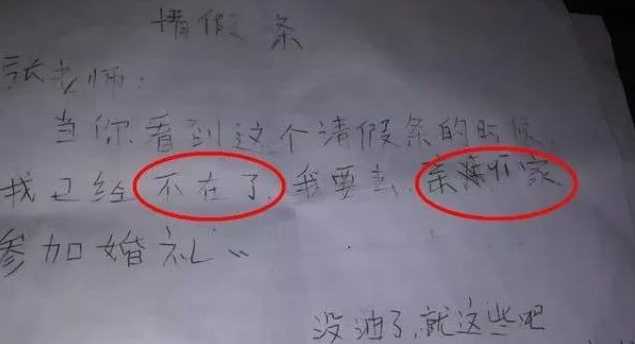 情假条
张老师：
当你看到这个请假条的时候，
我已经不在了，我要去 亲 家
参加婚礼。
没油了，就这些吧